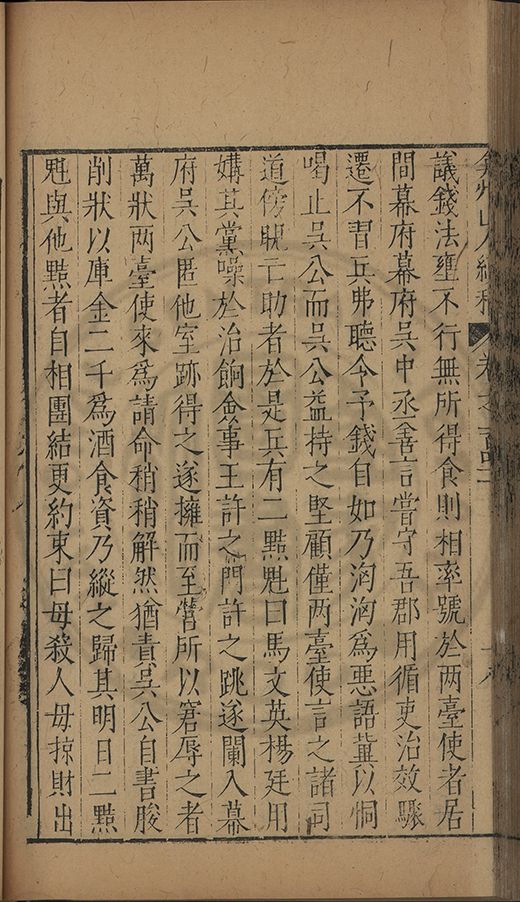 弇州山人續稿 卷之百
議錢法壅不行無所得食則相率號於两臺使者居
間幕府幕府吳中丞善言嘗守吾郡用循吏治效驟
遷不習兵弗聽令予錢自如乃洶洶爲惡語冀以恫
喝止吳公而吳公益持之堅顧僅两臺使言之諸司
道傍睨亡助者於是兵有二黠魁曰馬文英楊廷用
媾其黨噪於治餉僉事王許之門許之跳遂闌入幕
府吳公匿他室跡得之遂擁而至營所以窘辱之者
萬狀两臺使來爲請命稍稍解然猶責吳公自書朘
削狀以庫金二千爲酒食資乃縱之歸其明日二黠
魁與他黠者自相團結更約束曰毋殺人毋掠財出